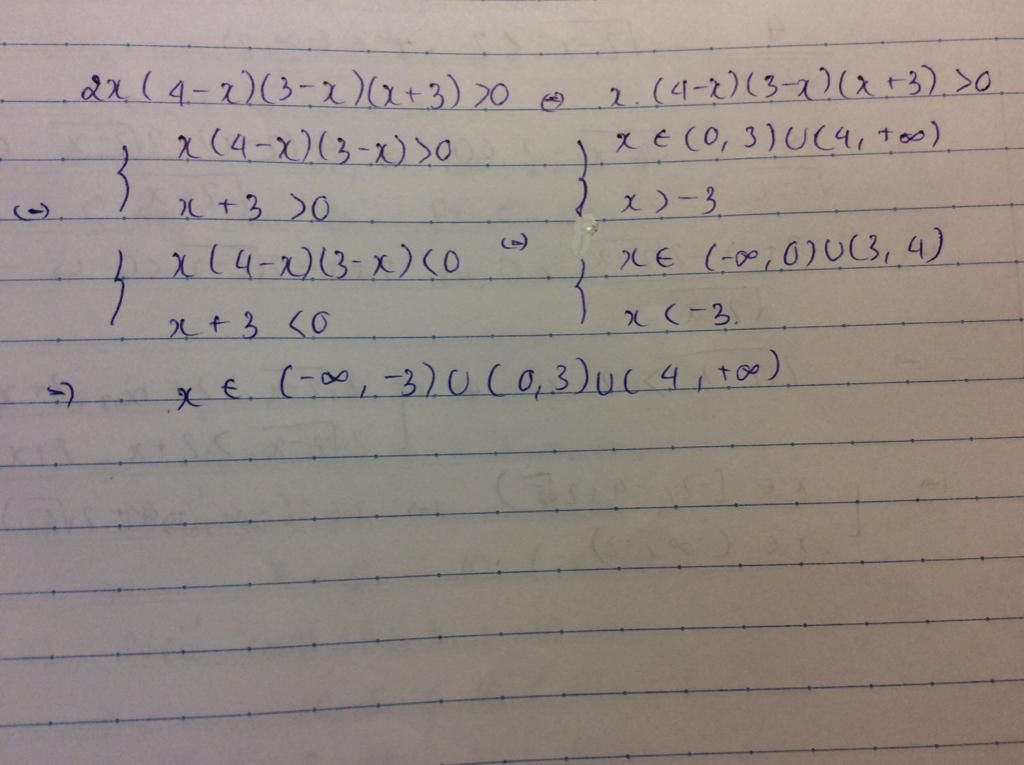 2x(4-x)(3-x)(x+3)>0 ⇔ x.(4-x)(3-x)(x+3)>0
x(4-x)(3-x)>0 x∈(0,3)∪(4,+∞)
⇔ x+3>0 x>-3
x(4-x)(3-x)<0 ⇔ x∈(-∞,0)∪(3,4)
x+3<0 x<-3.
⇒ x∈(-∞,-3)∪(0,3)∪(4,+∞)